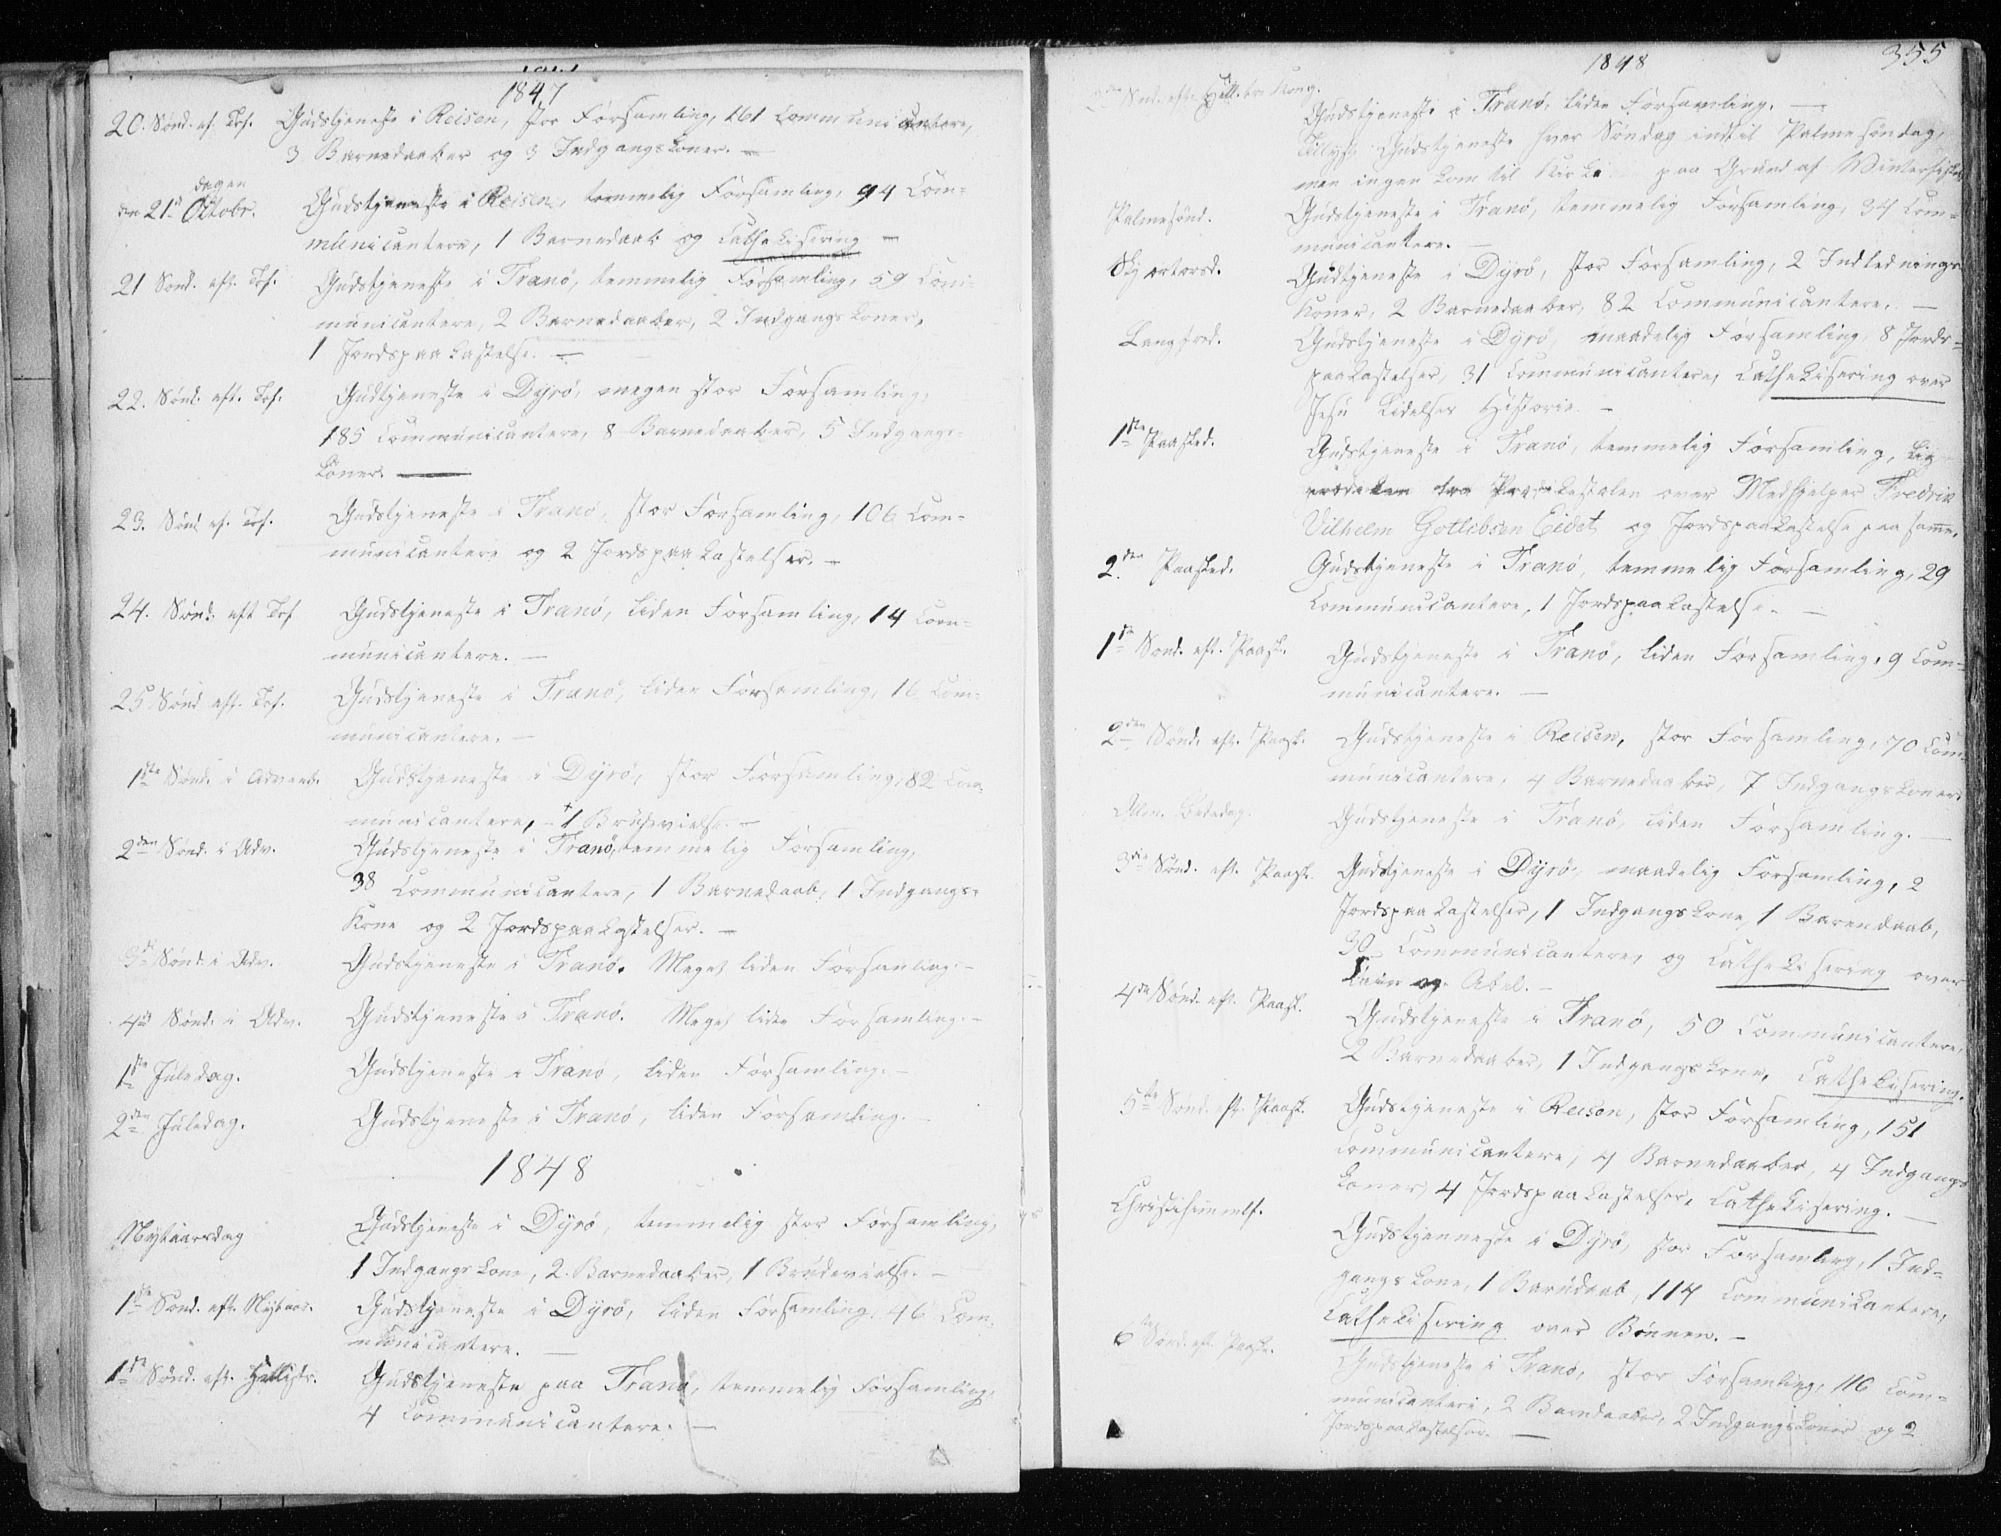 1847
20. Sønd. ef. Trf. Gudstjeneste i Reisen, stor Forsamling, 161 Communicantere,
3 Barnedaaber og 3 Indgangskoner. —
dagen
den 21de Octobr. Gudstjeneste i Reisen, temmelig Forsamling, 94 Com-
municantere, 1 Barnedaab og Cathekisering —
21 Sønd. eft. Trf. Gudstjeneste i Tranø, temmelig Forsamling, 59 Com-
municantere, 2 Barnedaaber, 2 Indgangskoner,
1 Jordspaakastelse. —
22. Sønd. eft. Trf. Gudtjeneste i Dyrø, megen stor Forsamling,
185 Communicantere, 8 Barnedaaber, 5 Indgangs-
koner. —
23. Sønd ef. Trf. Gudstjeneste i Tranø, stor Forsamling, 106 Com-
municantere og 2 Jordspaakastelser. —
24. Sønd. eft Trf Gudstjeneste i Tranø, liden Forsamling, 14 Com-
municantere. —
25 Sønd eft. Trf. Gudstjeneste i Tranø, liden Forsamling, 16 Com-
municantere. —
1ste Sønd. i Advent. Gudstjeneste i Dyrø, stor Forsamling, 82 Com-
municantere, 1 Brudevielse. —
2den Sønd. i Adv. Gudstjeneste i Tranø, temmelig Forsamling,
38 Communicantere, 1 Barnedaab, 1 Indgangs-
kone og 2 Jordspaakastelser. —
3die Sønd. i Adv. Gudstjeneste i Tranø. Meget liden Forsamling. —
4de Sønd. i Adv. Gudstjeneste i Tranø. Meget liden Forsamling. —
1ste Juledag. Gudstjeneste i Tranø, liden Forsamling. —
2den Juledag. Gudstjeneste i Tranø, liden Forsamling. —
1848
Nytaarsdag Gudstjeneste i Dyrø, temmelig stor Forsamling,
1 Indgangskone, 2 Barnedaaber, 1 Brudevielse. —
1ste Sønd. eft. Nytaar. Gudstjeneste i Dyrø, liden Forsamling, 46 Com-
municantere. —
1ste Sønd. eft. Hellig tr. Gudstjeneste paa Tranø, temmelig Forsamling,
4 Communicantere. —
1848 355
2den Sønd. eft. Hell. tre Kong. Gudstjeneste i Tranø, liden Forsamling. —
Gudstjeneste hver Søndag indtil Palmesøndag,
men ingen kom til Kirke paa Grund af Vinterfisket
Palmesønd. Gudstjeneste i Tranø, temmelig Forsamling, 34 Com-
municantere. —
Skjærtorsd. Gudtjeneste i Dyrø, stor Forsamling, 2 Indlednings-
koner, 2 Barnedaaber, 82 Communicantere. —
Langfred. Gudstjeneste i Dyrø, maadelig Forsamling, 8 Jords-
paakastelser, 31 Communicantere, Cathekisering over
Jesu Lidelses Historie. —
1ste Paasked. Gudstjeneste i Tranø, temmelig Forsamling, Lig-
prædiken fra Prædikestolen over Medhjelper Fredrik
Vilhelm Gotlibsen Eidet og Jordspaakastelse paa samme.
2den Paasked. Gudstjeneste i Tranø, temmelig Forsamling, 29
Communicantere, 1 Jordspaakastelse. —
1ste Sønd. eft. Paask. Gudstjeneste i Tranø, liden Forsamling, 9 Com-
municantere. —
2den Sønd. eft. Paask. Gudstjeneste i Reisen, stor Forsamling, 70 Com-
municantere, 4 Barnedaaber, 7 Indgangskoner.
Alm. Bededag. Gudstjeneste i Tranø, liden Forsamling. —
3die Sønd. eft. Paask. Gudstjeneste i Dyrø, maadelig Forsamling, 2
Jordspaakastelser, 1 Indgangskone, 1 Barendaab,
30 Communicantere, og Cathekisering over
Cain og Abel. —
4de Sønd. eft. Paask. Gudstjeneste i Tranø, 50 Communicantere,
2 Barnedaaber, 1 Indgangskone, Cathekisering.
5te Sønd. ft. Paask. Gudstjeneste i Reisen, stor Forsamling, 151
Communicantere, 4 Barnedaaber, 4 Indgangs
koner, 4 Jordspaakastelser, Cathekisering. —
Christihimmlf. Gudstjenneste i Dyrø, stor Forsamling, 1 Ind-
gangskone, 1 Barndaab, 114 Communikantere,
Cathekisering over Bønnen. —
6te Sønd. eft. Paask. Gudstjeneste i Tranø, stor Forsamling, 116 Com-
municantere, 2 Barndaaber, 2 Indgangskoner og 2
Jordspaakastelser. —